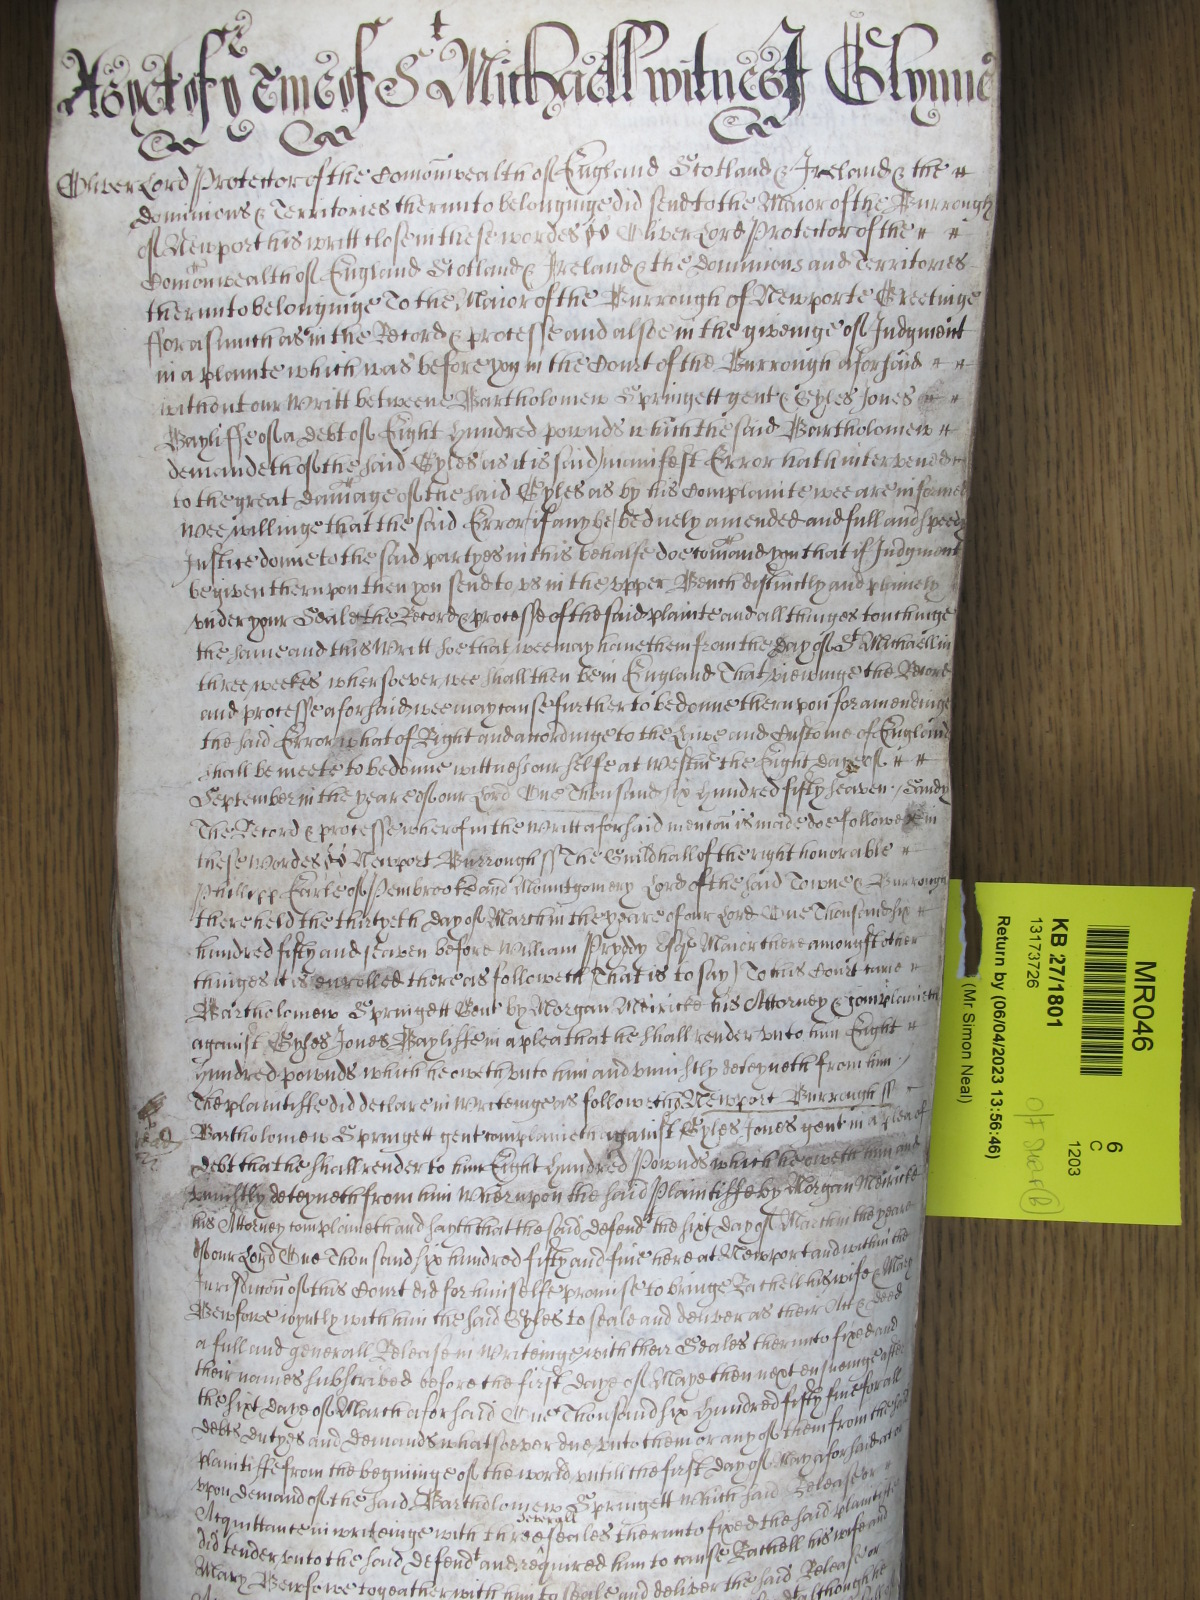 As yet of ye Terme of St Michaell witnes J Glynne
Oliver Lord Protector of the Comonwealth of England Scotland & Ireland & the
dominions & Territories therunto belonginge did send to the Maior of the Burrough
of Newport his writt close in these wordes ss Oliver Lord Protector of the
Comonwealth of England Scotland & Ireland & the dominions and Territories
therunto belonginge To the Maior of the Burrough of Newporte Greetinge
Forasmuch as in the Record & processe and alsoe in the giveinge of Judgment
in a plainte which was before you in the Court of the Burrough aforsaid
without our Writt betweene Bartholomew Springett gent & Gyles Jones
Bayliffe of a debt of Eight hundred pownds which the said Bartholomew
demandeth of the said Gyles as it is said manifest Error hath intervened
to the great damage of the said Gyles as by his Complainte wee are informed
Wee willinge that the said Error if any be bee duely amended and full and speedy
Justice donne to the said partyes in this behalfe doe comand you that if Judgment
be given therupon then you send to us in the upper Bench distinctly and plainely
under your Seale the Record & processe of the said plainte and all thinges touchinge
the same and this Writt soe that wee may have them from the day of St Michaell in
three weekes whersoever wee shall then be in England That viewinge the Record
and processe aforsaid wee may cause further to be donne therupon for amendinge
the said Error what of Right and accordinge to the Lawe and Custome of England
shall be meete to be donne wittnes our selfe at Westmr the Eight daye of
September in the yeare of our Lord One Thousand six hundred fifty seaven / Candy
The Record & processe wherof in the Writt aforsaid mencon is made doe followe in
these wordes ss Newport Burrough ss The Guildhall of the right honorable
Phillipp Earle of Pembrooke and Mountgomery Lord of the said Towne & Burrough
there held the thirtyeth day of March in the yeare of our Lord One Thousand six
hundred fifty and seaven before William Pryddy Esqr Maior there amongst other
thinges it is enrolled there as followeth That is to say To this Court came
Bartholomew Springett Gent by Morgan Meiricke his Attorney & complaineth
against Gyles Jones Bayliffe in a plea that he shall render unto him Eight
hundred pownds which he oweth unto him and uniustly deteyneth from him /
The plaintiffe did declare in Writeinge as followeth Newport Burrough ss
Bartholomew Springett gent complaineth against Gyles Jones gent in a plea of
debt that he shall render to him Eight hundred Pownds which he oweth him and
uniustly deteyneth from him Wherupon the said Plaintiffe by Morgan Meiricke
his Attorney complaineth and sayth that the said defendt the sixt day of March in the yeare
of our Lord One Thousand six hundred fifty and five here at Newport and within the
Jurisdiccon of this Court did for himselfe promise to bringe Rachell his wife & Mary
Bewsowe ioyntly with him the said Gyles to seale and deliver as their Act & deed
a full and generall Release in Writeinge with their Seales therunto fixed and
their names subscribed before the first daye of Maye then next ensueinge after
the sixt daye of March aforsaid One Thousand six hundred fifty five for all
debts dutyes and demands whatsoever due unto them or any of them from the said
plaintiffe from the begininge of the world untill the first day of May aforsaid at or
upon demand of the said Bartholomew Springett which said Release or
Acquittance in writeinge with three severall seales therunto fixed the said plaintiffe
did tender unto the said defendt and required him to cause Rachell his wife and
Mary Bewsowe togeather with him to seale and deliver the said Release or
although he
MR046
KB 27/1801
13173726
Return by (06/04/2023 13:56:46)
(Mr Simon Neal)
6
C
1203